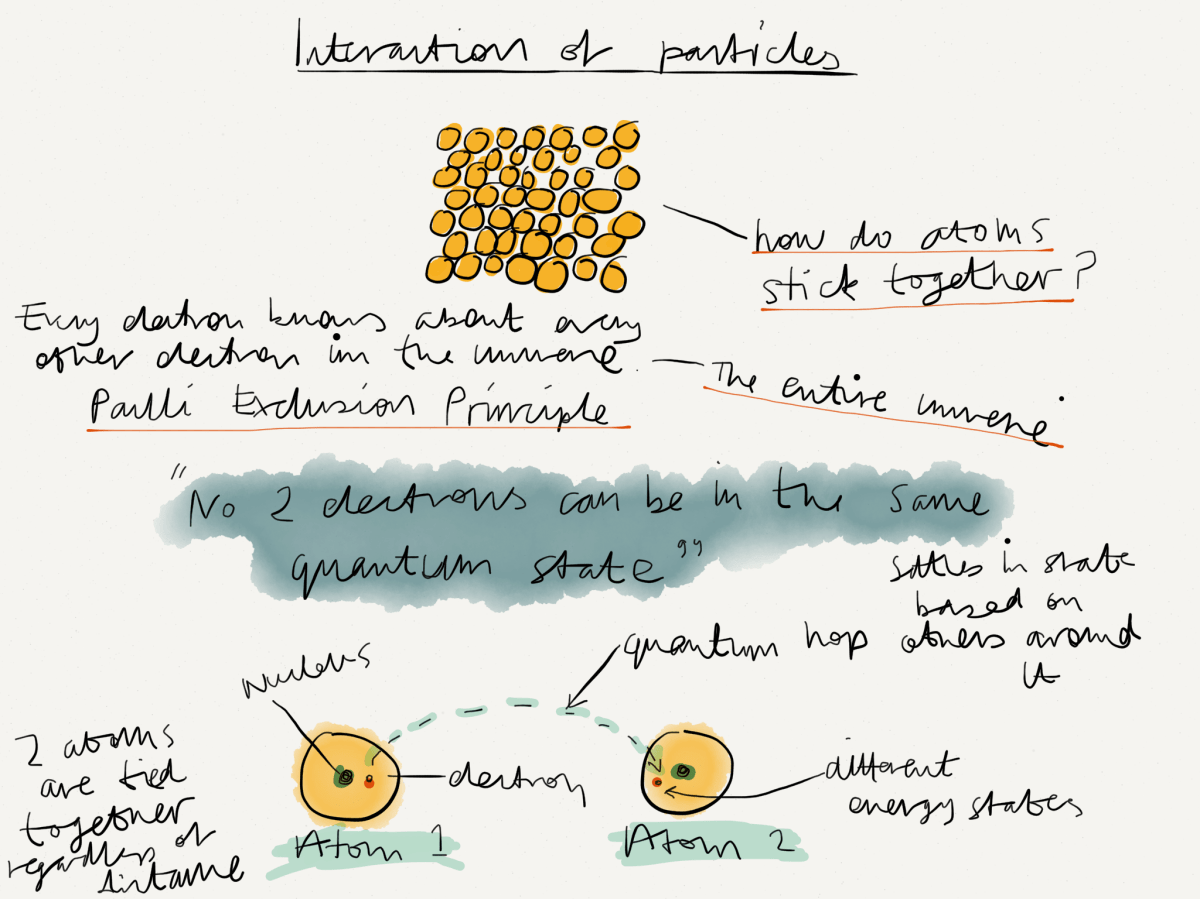 Interaction of particles
how do atoms
stick together?
Every electron knows about every
other electron in the universe.
The entire universe
Pauli Exclusion Principle
"No 2 electrons can be in the same
quantum state"
settles in state
based on
others around
it
quantum hop
Nucleus
2 atoms
are tied
together
regardless of
distance
electron
different
energy states
Atom 1
Atom 2